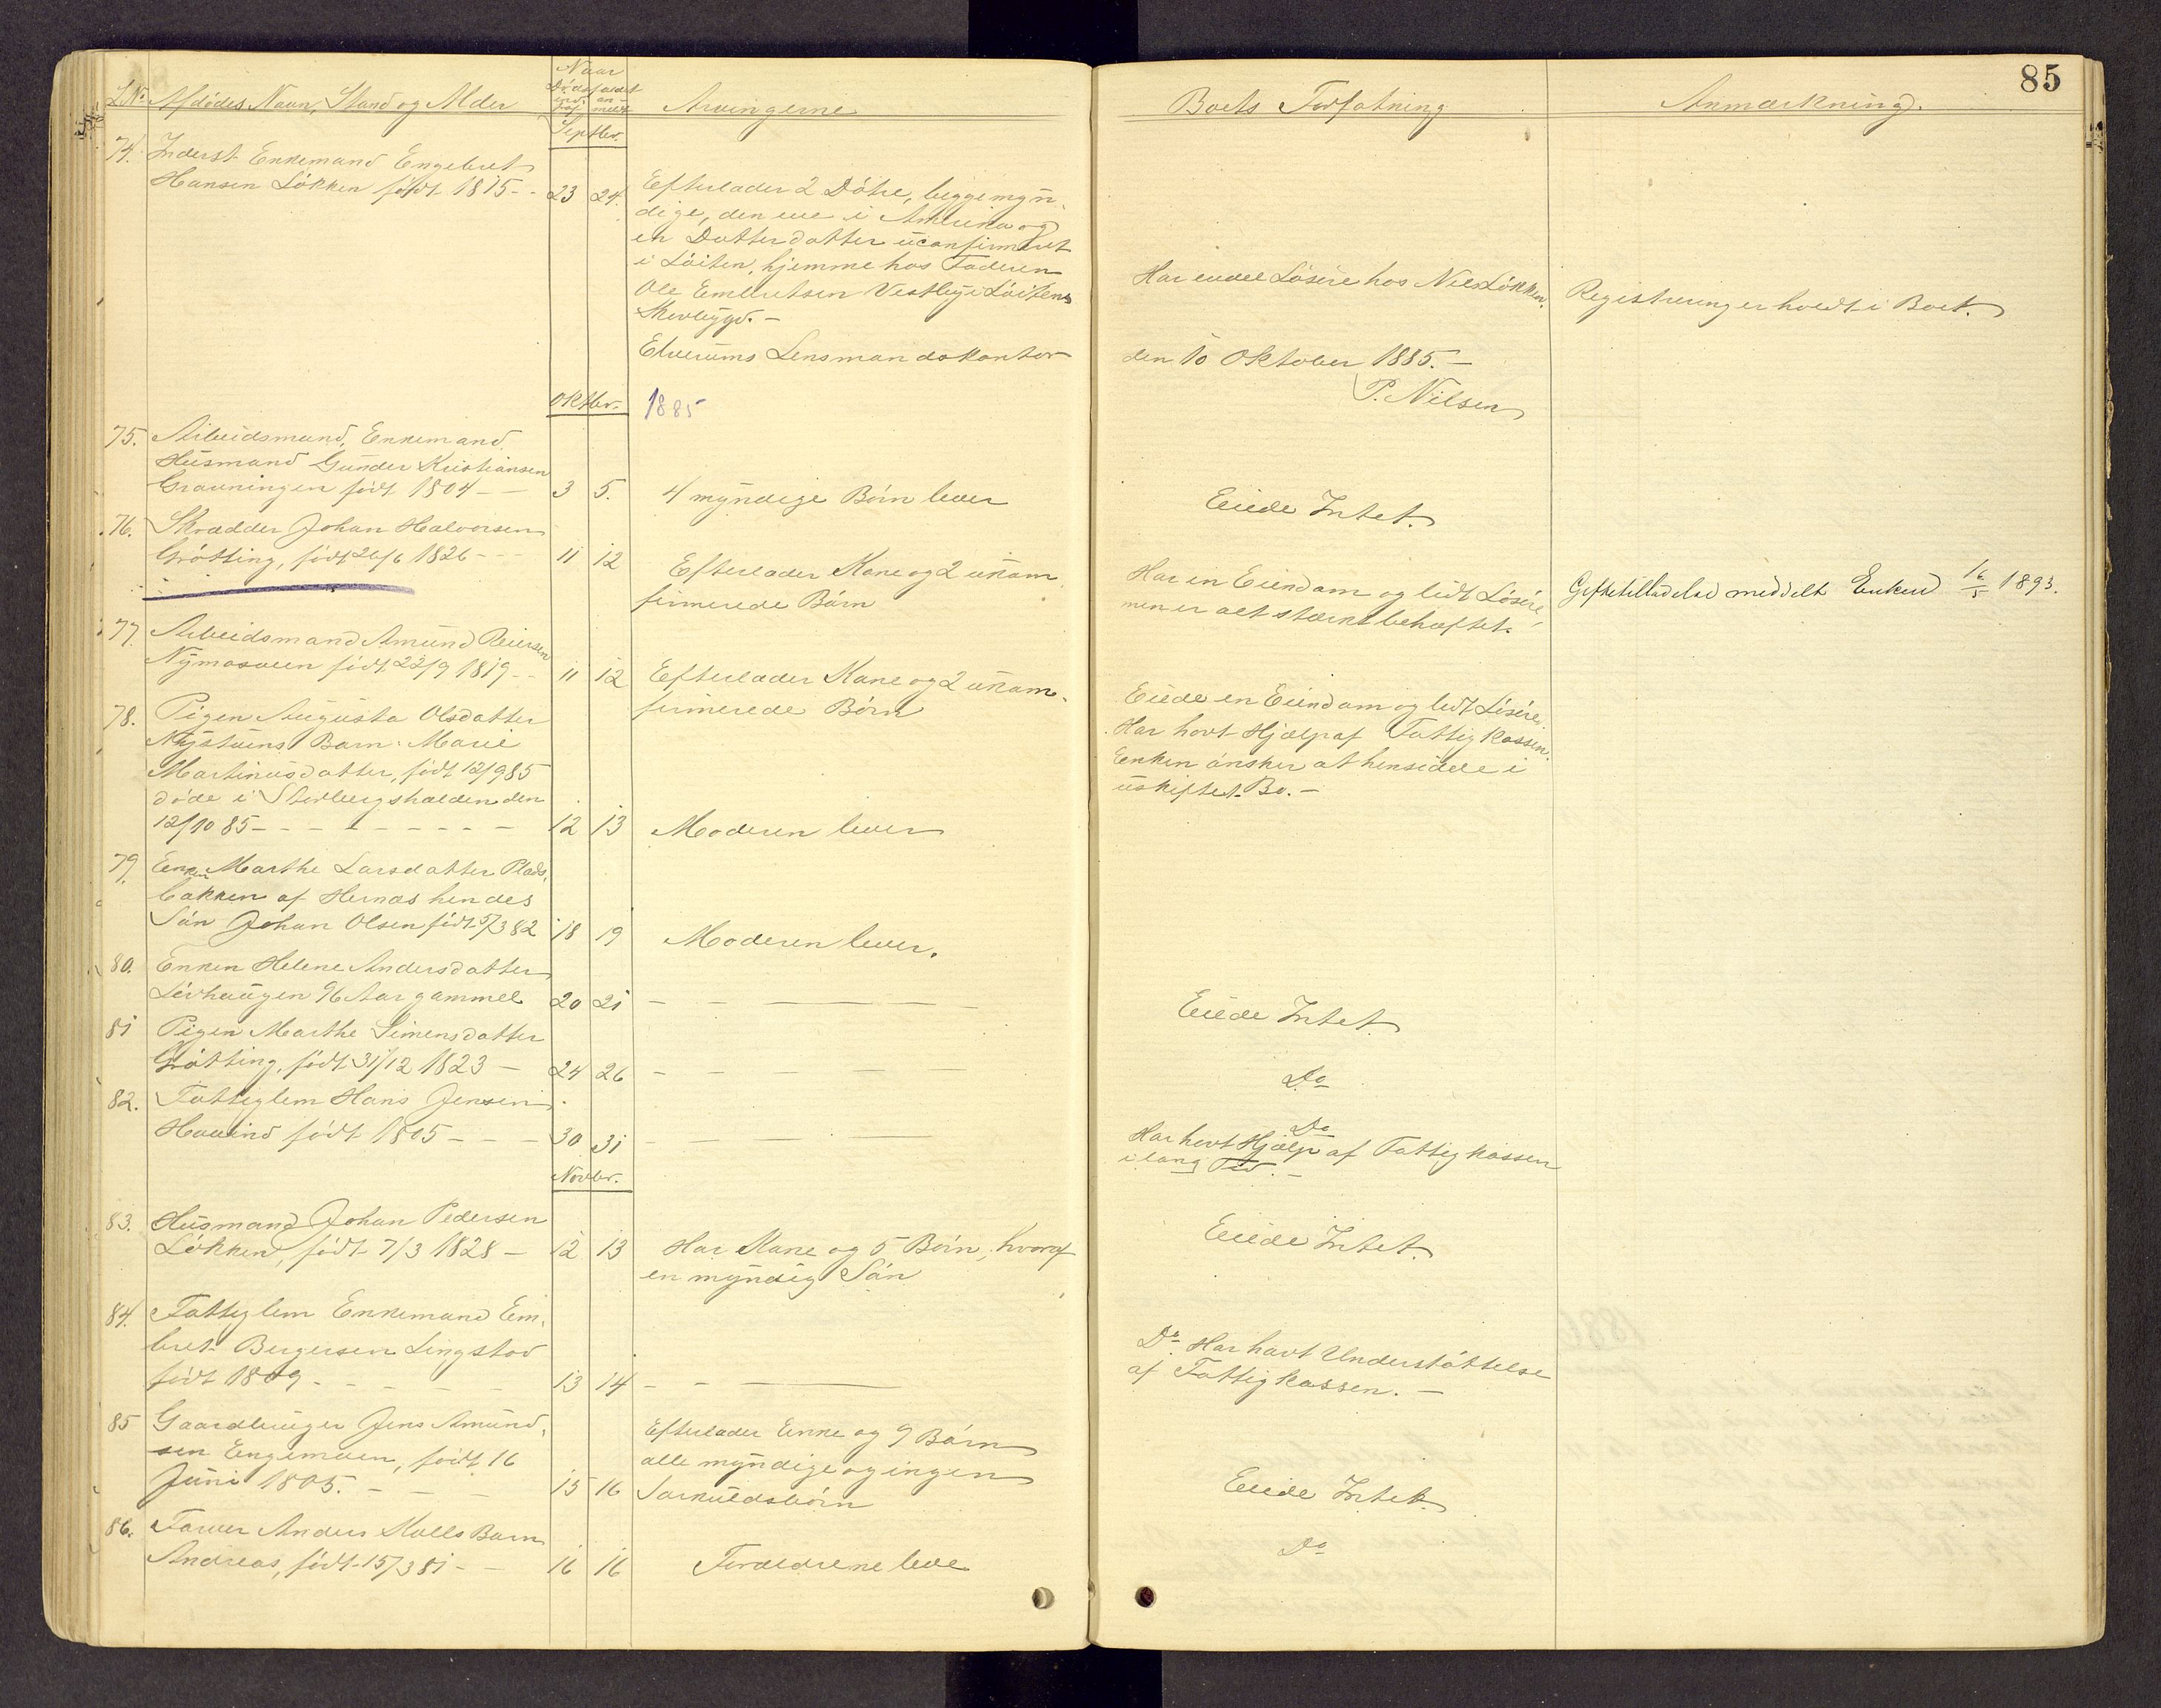 85
L.No. Afdødes Navn, Stand og Alder
Naar
Dødsfaldet
indtraf
anmeldt
Arvingerne
Boets Forfatning
Anmærkning.
Septbr.
74. Inderst Enkemand Engebret
Hansen Løkken født 1815 - - 23 24.
Efterlader 2 Døtre, begge myn-
dige, den ene i Amerika og
en Datterdatter uconfirmeret
i Løiten, hjemme hos Faderen
Ole Embretsen Vestby i Løitens
Skovbygd. -
Har endel Løsøre hos Nils Løkken.
Registrering er holdt i Boet.
Elverums Lensmandskontor
den 10 Oktober 1885. -
P. Nilsen
Oktbr.
1885
75. Arbeidsmand, Enkemand
Husmand Gunder Kristiansen
Grauningen født 1804 - - 3 5.
4 myndige Børn lever
Eiede Intet.
76. Skrædder Johan Halvorsen
Grøtting, født 26/6 1826 - - - 11 12
Efterlader Kone og 2 ukom-
firmerede Børn
Har en Eiendom og lidt Løsøre,
men er alt stærkt behæftet.
Giftetilladelse meddelt Enken 16/5 1893.
77. Arbeidsmand Amund Reiersen
Nymosveen født 22/9 1819 - - 11 12
Efterlader Kone og 2 ukom-
firmerede Børn
Eiede en Eiendom og lidt Løsøre.
Har havt Hjælp af Fattigkassen.
Enken ønsker at hensidde i
uskiftet Bo. -
78. Pigen Augusta Olsdatter
Nystuens Barn: Marie
Martinusdatter, født 12/9 85
døde i Storbergshalden den
12/10 85 - - - - - - - - 12 13
Moderen lever
79. Enken Marthe Larsdatter Plads-
bakken af Hernæs hendes
Søn Johan Olsen født 5/3 82 18 19
Moderen lever.
80. Enken Helene Andersdatter
Løvhaugen 96 Aar gammel 20 21 - - - - -
Eiede Intet
81 Pigen Marthe Simensdatter
Grøtting, født 31/12 1823 - 24 26 - - - - -
Do
82. Fattiglem Hans Jensen
Hovind født 1805 - - - 30 31 - - - - -
Do
Har havt Hjælp af Fattigkassen
i lang Tid. -
Novbr.
83. Husmand Johan Pedersen
Løkken, født 7/3 1828 - 12 13
Har Kone og 5 Børn, hvoraf
en myndig Søn
Eiede Intet.
84. Fattiglem Enkemand Em-
bret Bergersen Lingstad
født 1809 - - - - - 13 14 - - -
Do. Har havt Understøttelse
af Fattigkassen. -
85 Gaardbruger Jens Amund-
sen Engemoen, født 16
Juni 1805. - - - 15 16
Efterlader Enke og 9 Børn
alle myndige og ingen
Særkuldsbørn
Eiede Intet.
86. Farver Anders Kolls Barn
Andreas, født 15/3 81 - - 16 16
Forældrene leve
Do